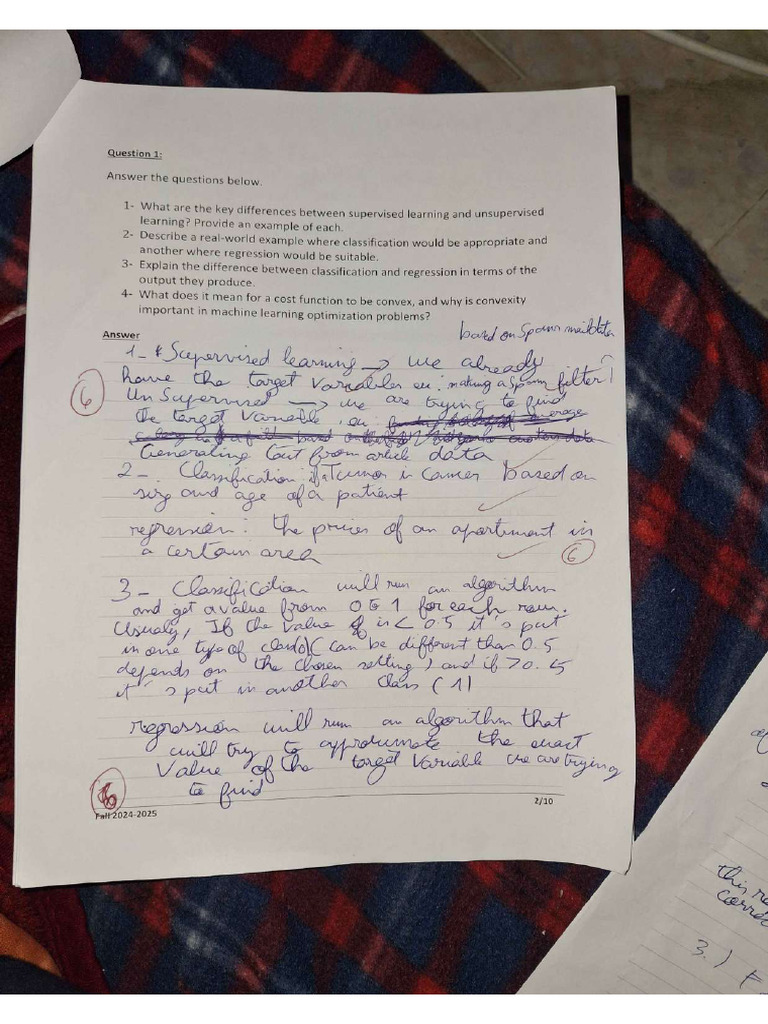 Question 1:
Answer the questions below.
1- What are the key differences between supervised learning and unsupervised
learning? Provide an example of each.
2- Describe a real-world example where classification would be appropriate and
another where regression would be suitable.
3- Explain the difference between classification and regression in terms of the
output they produce.
4- What does it mean for a cost function to be convex, and why is convexity
important in machine learning optimization problems?
Answer
based on spam mail data
1- * Supervised learning → we already
have the target variables ex: making a spam filter
Un Supervised → we are trying to find
the target variable, ex:
Generating text from article data
2- Classification: if a Tumor is cancer based on
size and age of a patient
regression: the prices of an apartment in
a certain area
6
6
3- Classification will run an algorithm
and get a value from 0 to 1 for each row.
Usualy, If the value is < 0.5 it's put
in one type of class (can be different than 0.5
depends on the chosen setting) and if > 0.5
it's put in another class (1)
regression will run an algorithm that
will try to approximate the exact
Value of the target Variable we are trying
to find
Fall 2024-2025
2/10
3.)